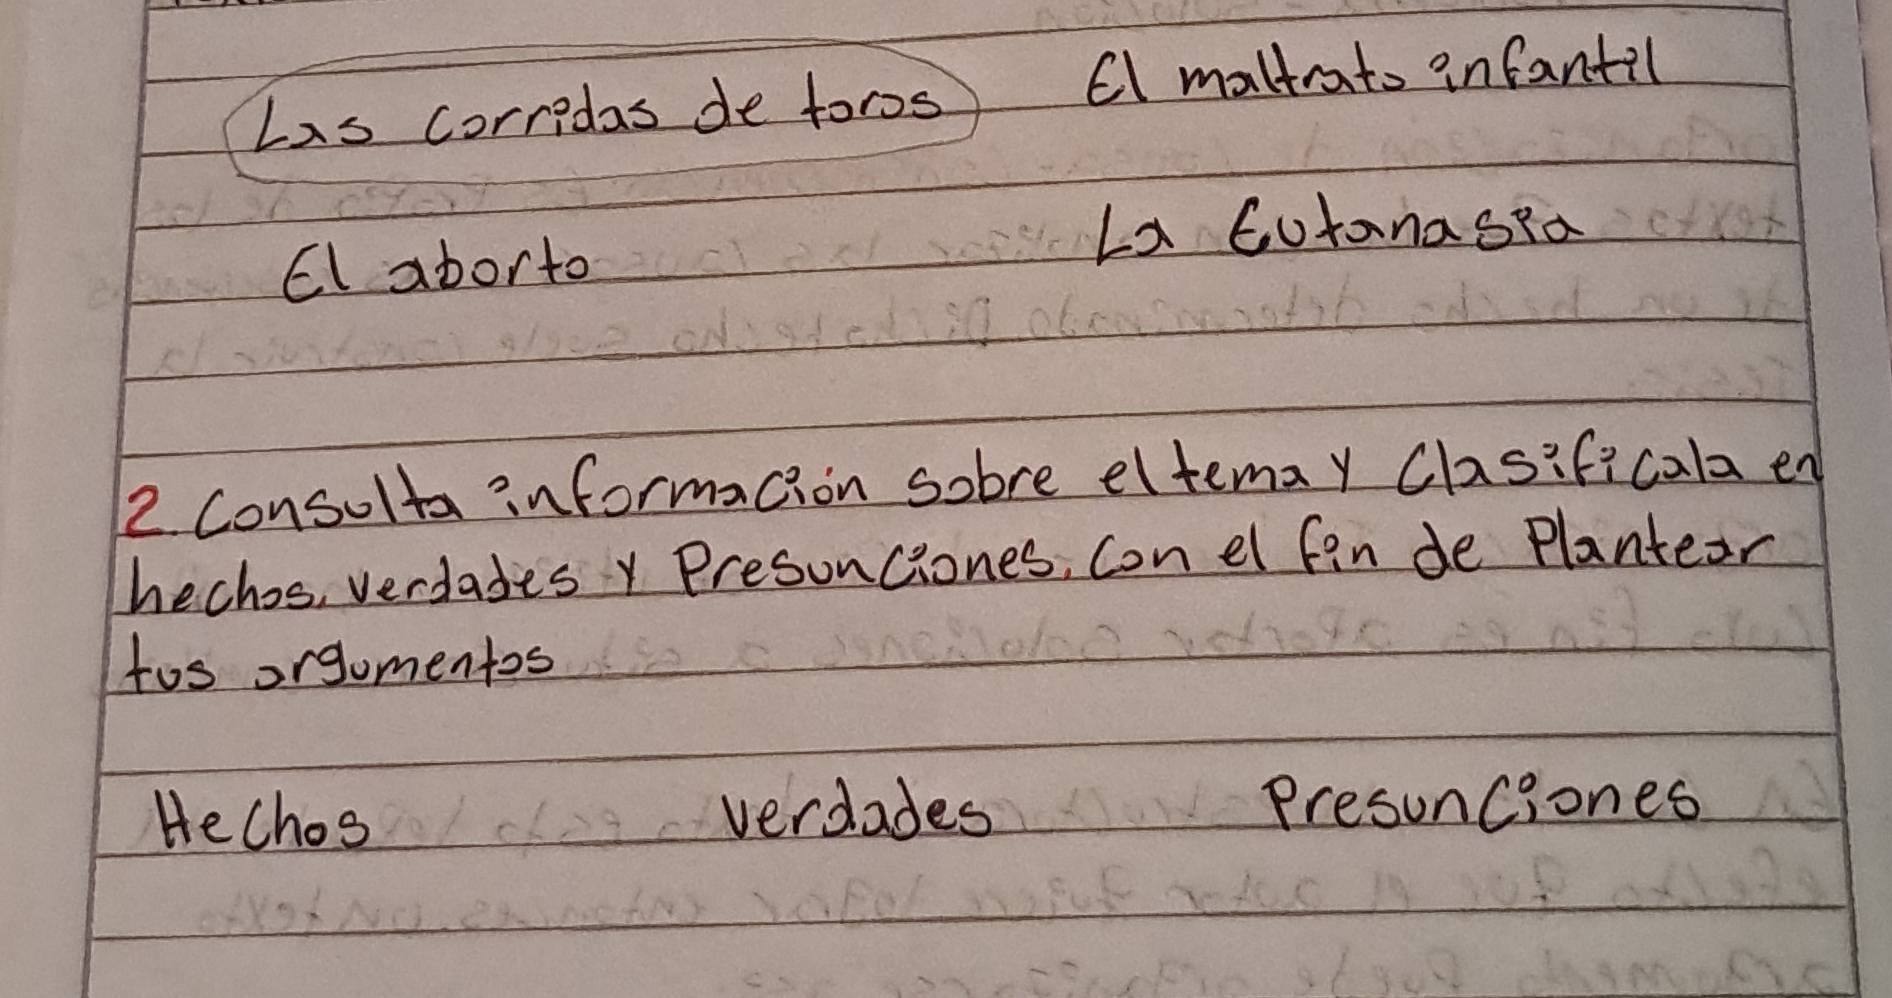 Las corridas de toros El maltrato infantil
El aborto La Eutanasia
2. Consulta información sobre el tema y Clasificala en
hechos, verdades y Presunciones, con el fin de Plantear
tus argumentos
Hechos verdades Presunciones